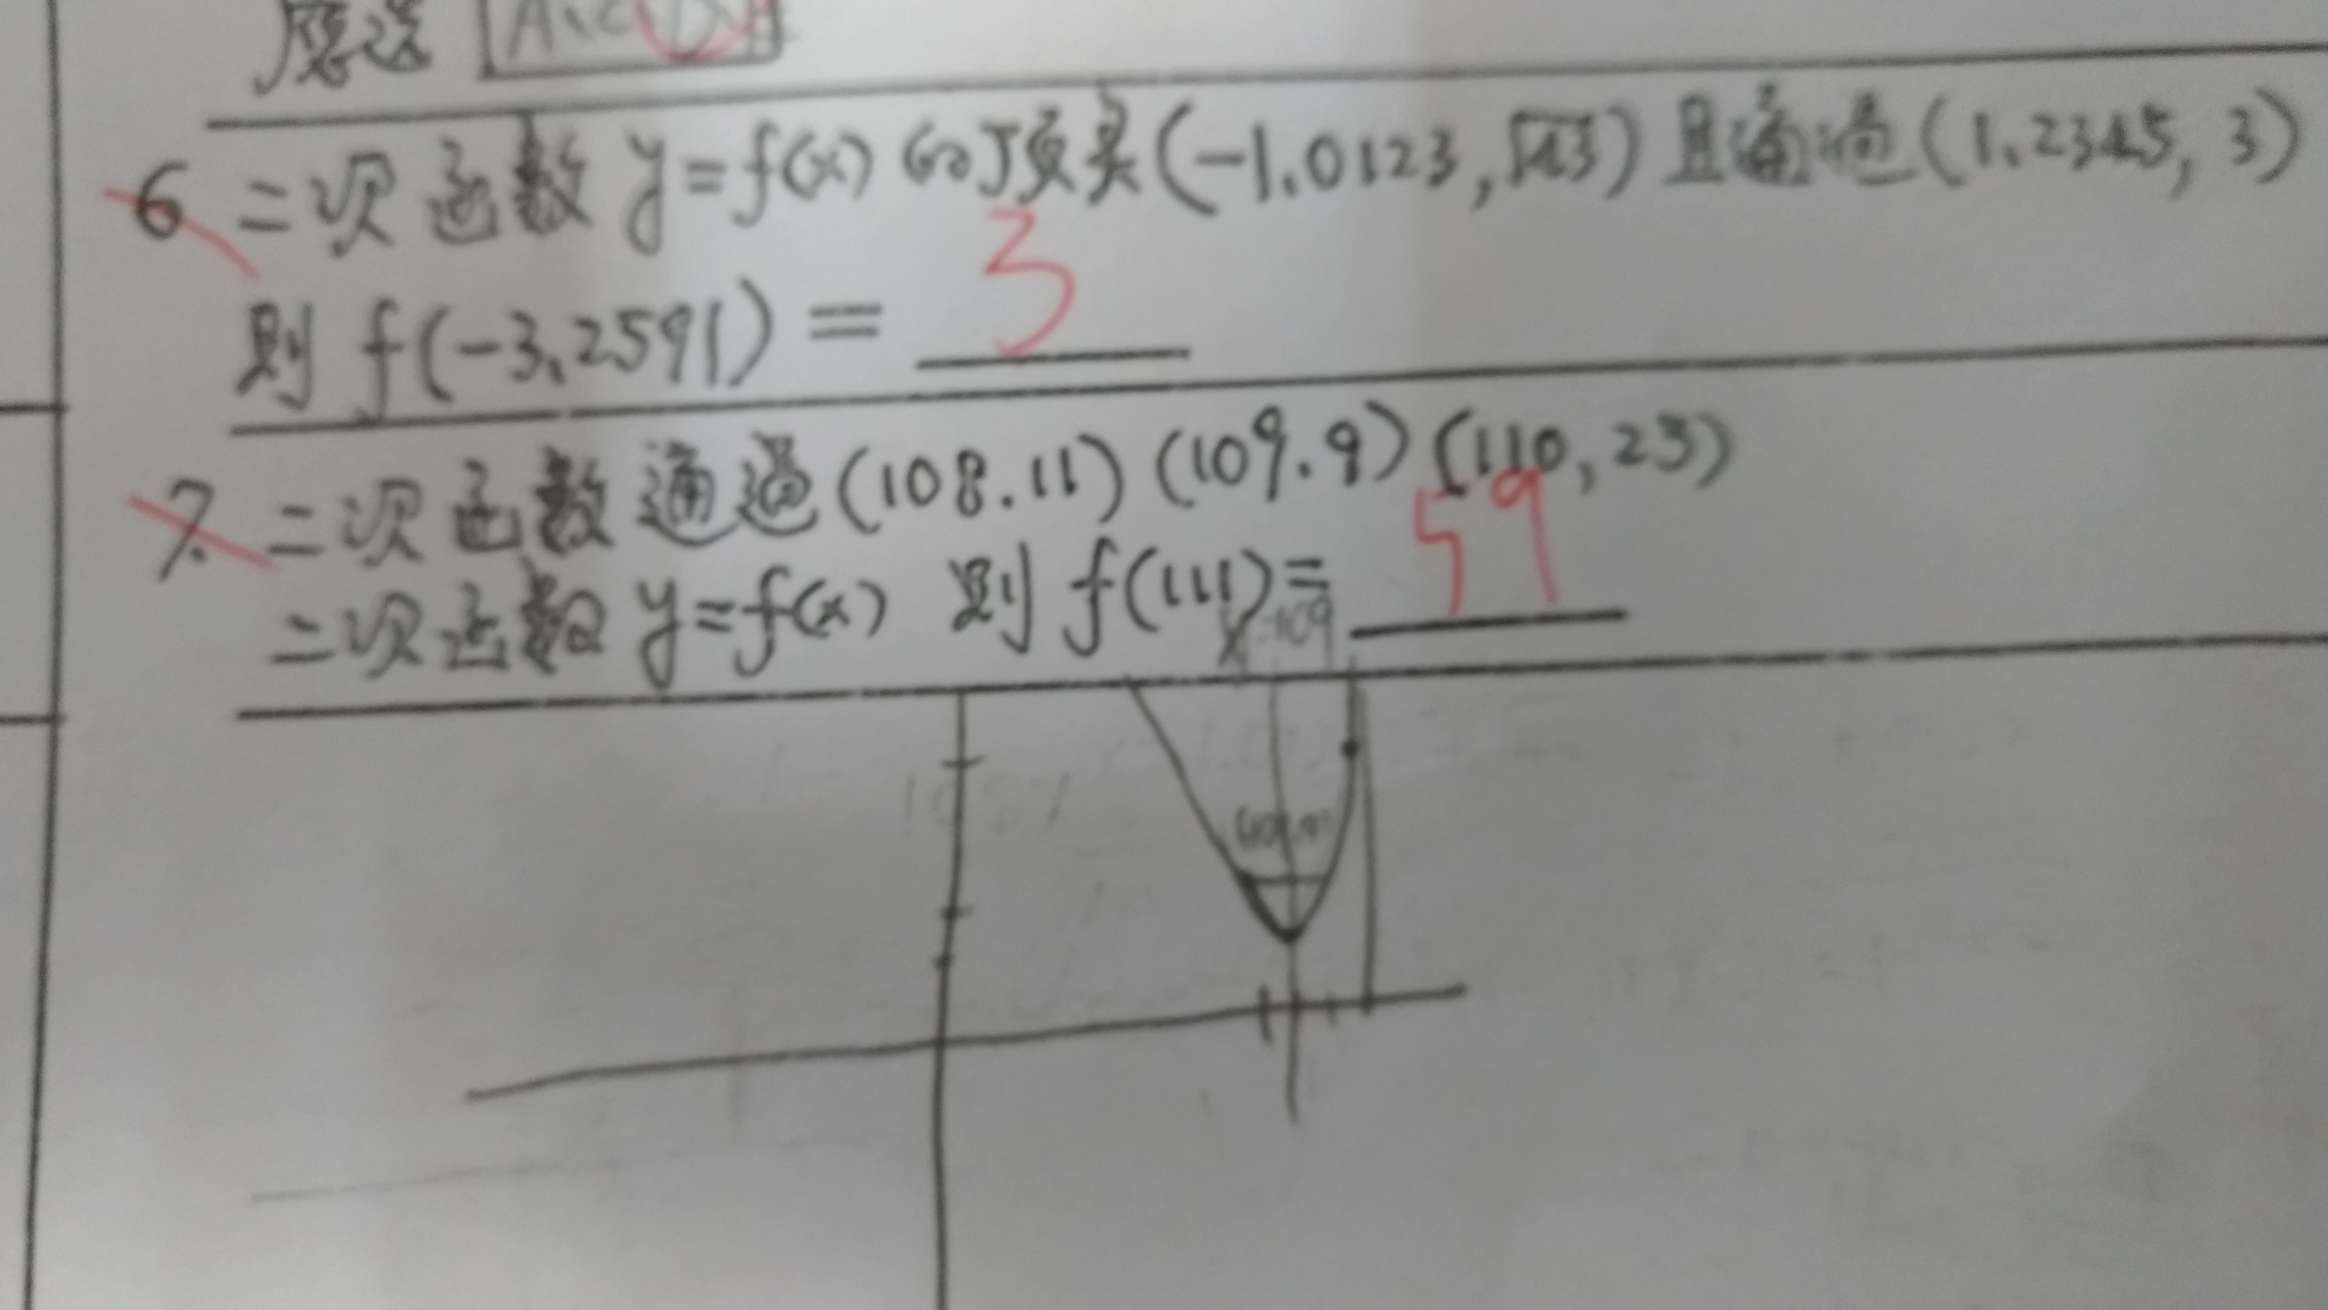 應選 A、C、D
6 二次函数 y=f(x) 的顶点(-1.0123,√43)且通過(1.2345,3)
則 f(-3.2591)= 3
7. 二次函数通過(108.11)(109.9)(110,23)
二次函数 y=f(x) 則 f(111)= 59